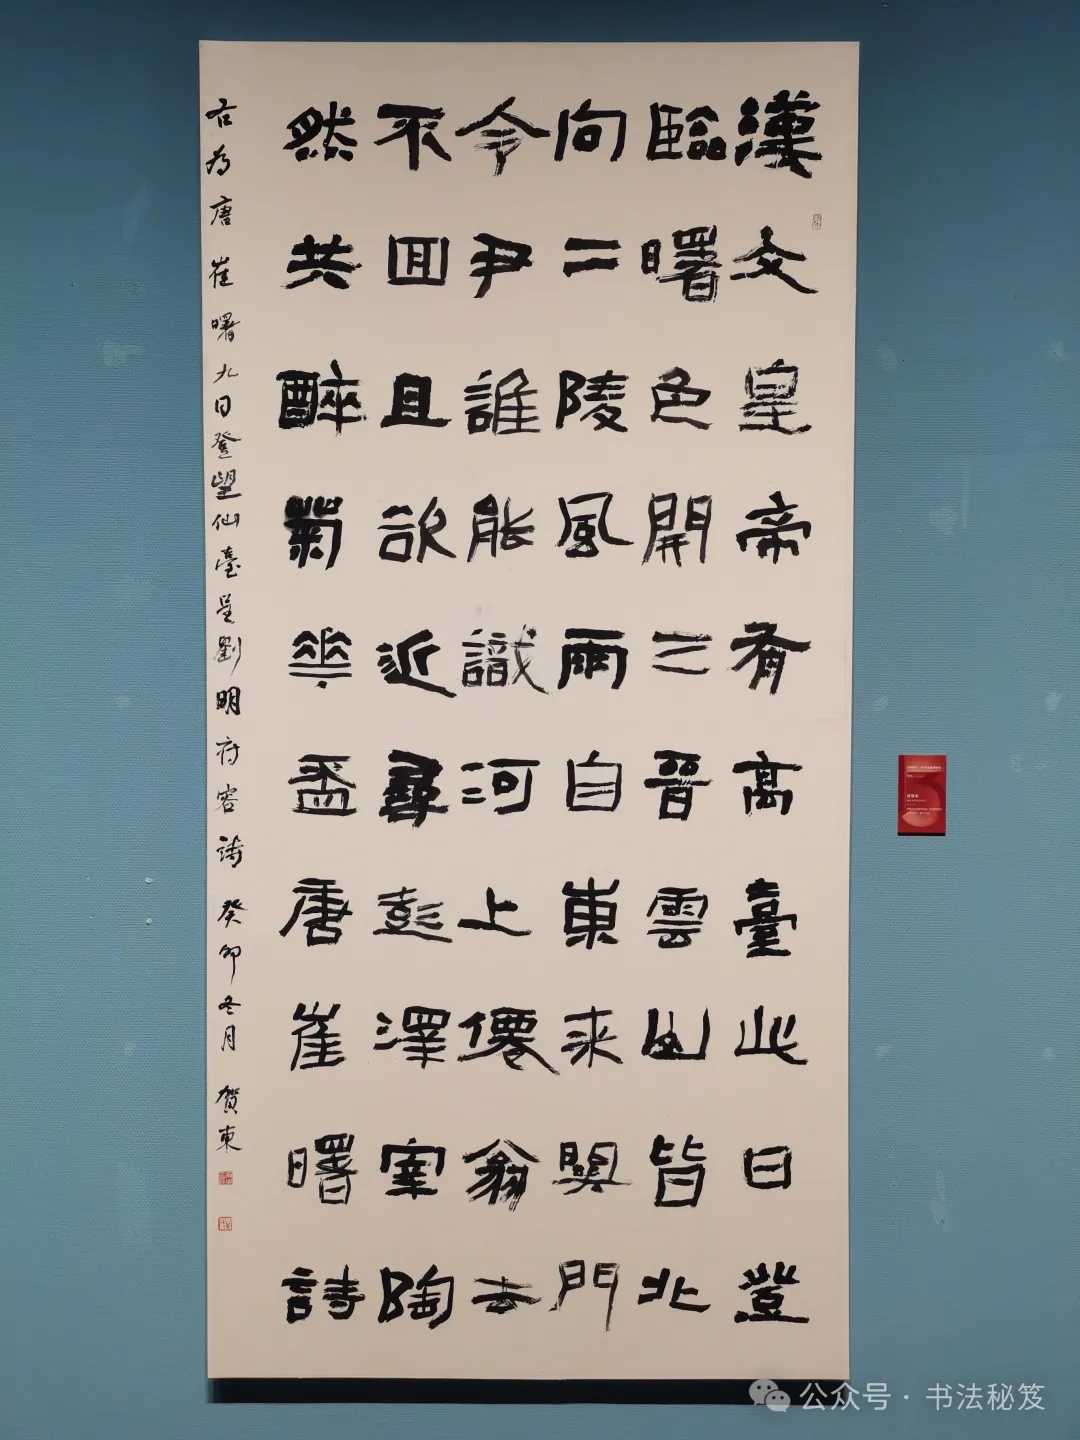 漢文皇帝有高臺此日登
臨曙色開三晉雲山皆北
向二陵風雨自東来関門
令尹誰能識河上僊翁去
不囬且欲近尋彭澤宰陶
然共醉菊華盃唐崔曙詩
右為唐崔曙九日登望仙臺呈劉明府容詩癸卯冬月賀東
公众号·书法秘笈